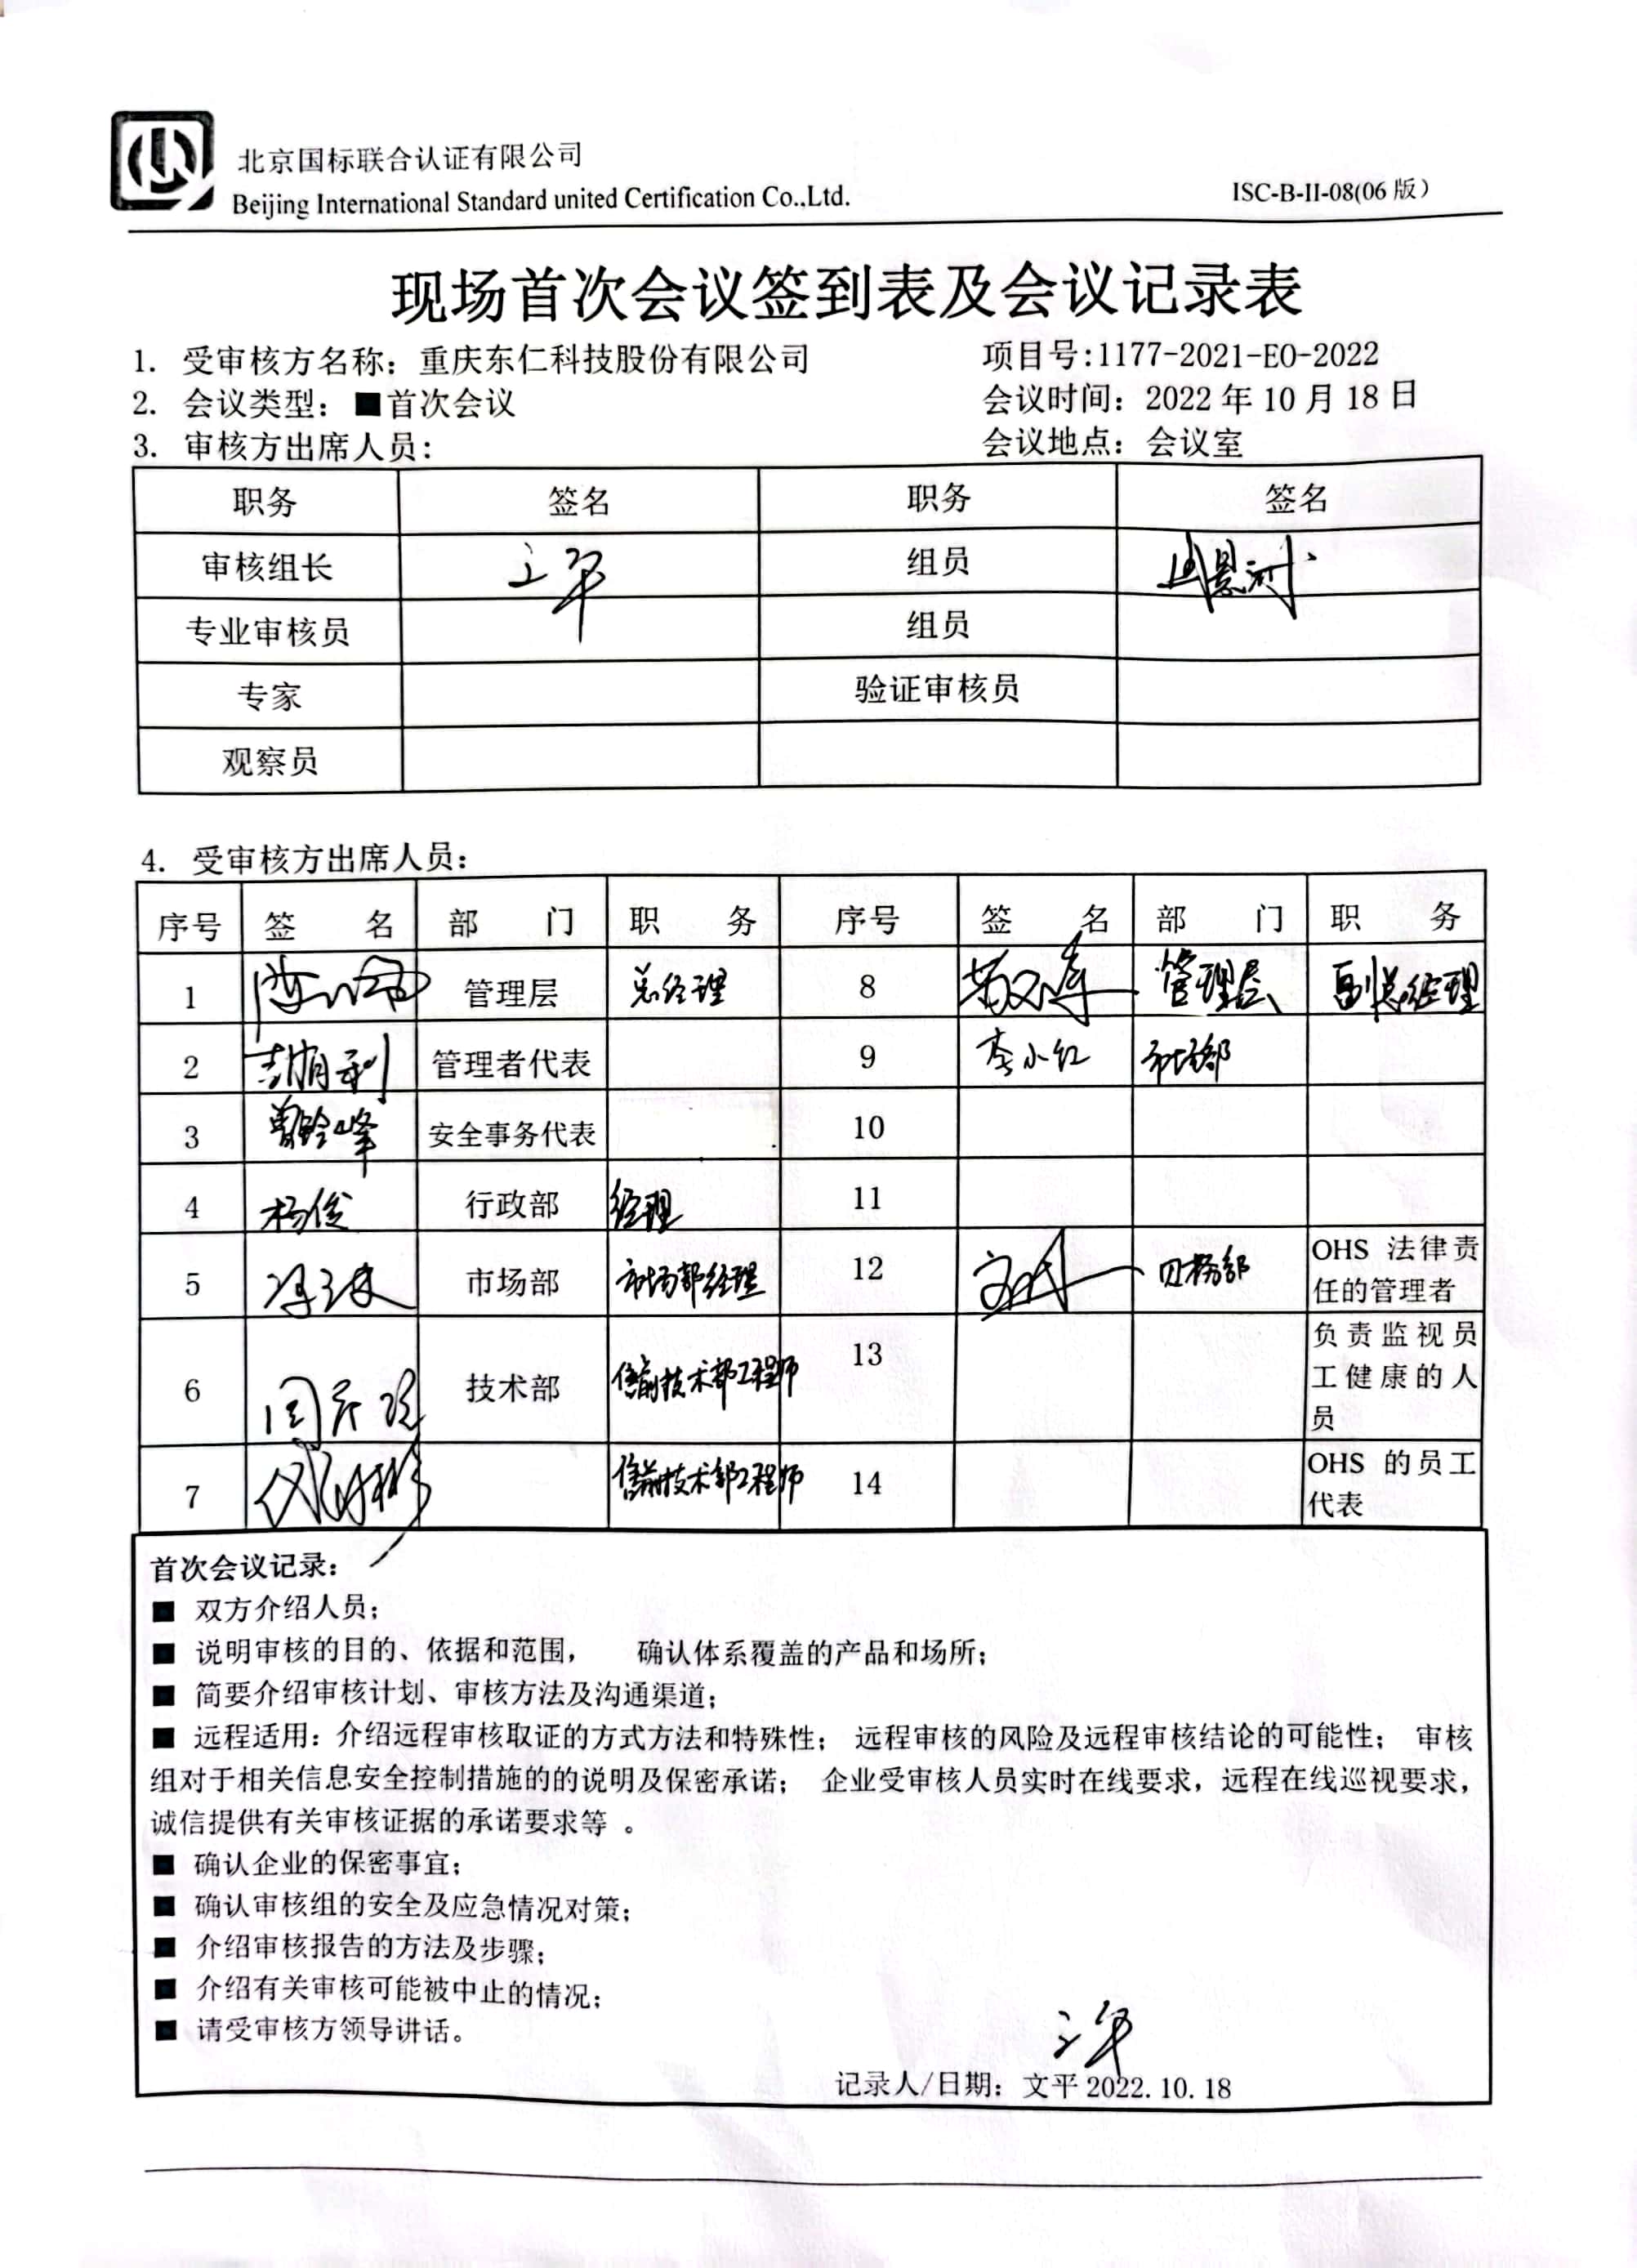 北京国标联合认证有限公司
Beijing International Standard united Certification Co.,Ltd.
ISC-B-II-08(06 版)
现场首次会议签到表及会议记录表
1. 受审核方名称：重庆东仁科技股份有限公司 项目号:1177-2021-EO-2022
2. 会议类型：■首次会议 会议时间：2022 年 10 月 18 日
3. 审核方出席人员： 会议地点：会议室
职务 签名 职务 签名
审核组长 文平 组员
专业审核员 组员
专家 验证审核员
观察员
4. 受审核方出席人员：
序号 签 名 部 门 职 务 序号 签 名 部 门 职 务
1 管理层 总经理 8 管理层 副总经理
2 管理者代表 9 李小红 市场部
3 安全事务代表 10
4 杨俊 行政部 经理 11
5 市场部 市场部经理 12 财务部 OHS 法律责
任的管理者
6 技术部 售前技术部工程师 13 负责监视员
工健康的人
员
7 售前技术部工程师 14 OHS 的员工
代表
首次会议记录：
■ 双方介绍人员；
■ 说明审核的目的、依据和范围， 确认体系覆盖的产品和场所；
■ 简要介绍审核计划、审核方法及沟通渠道；
■ 远程适用：介绍远程审核取证的方式方法和特殊性； 远程审核的风险及远程审核结论的可能性； 审核
组对于相关信息安全控制措施的的说明及保密承诺； 企业受审核人员实时在线要求，远程在线巡视要求，
诚信提供有关审核证据的承诺要求等 。
■ 确认企业的保密事宜；
■ 确认审核组的安全及应急情况对策；
■ 介绍审核报告的方法及步骤；
■ 介绍有关审核可能被中止的情况；
■ 请受审核方领导讲话。
文平
记录人/日期：文平 2022.10.18